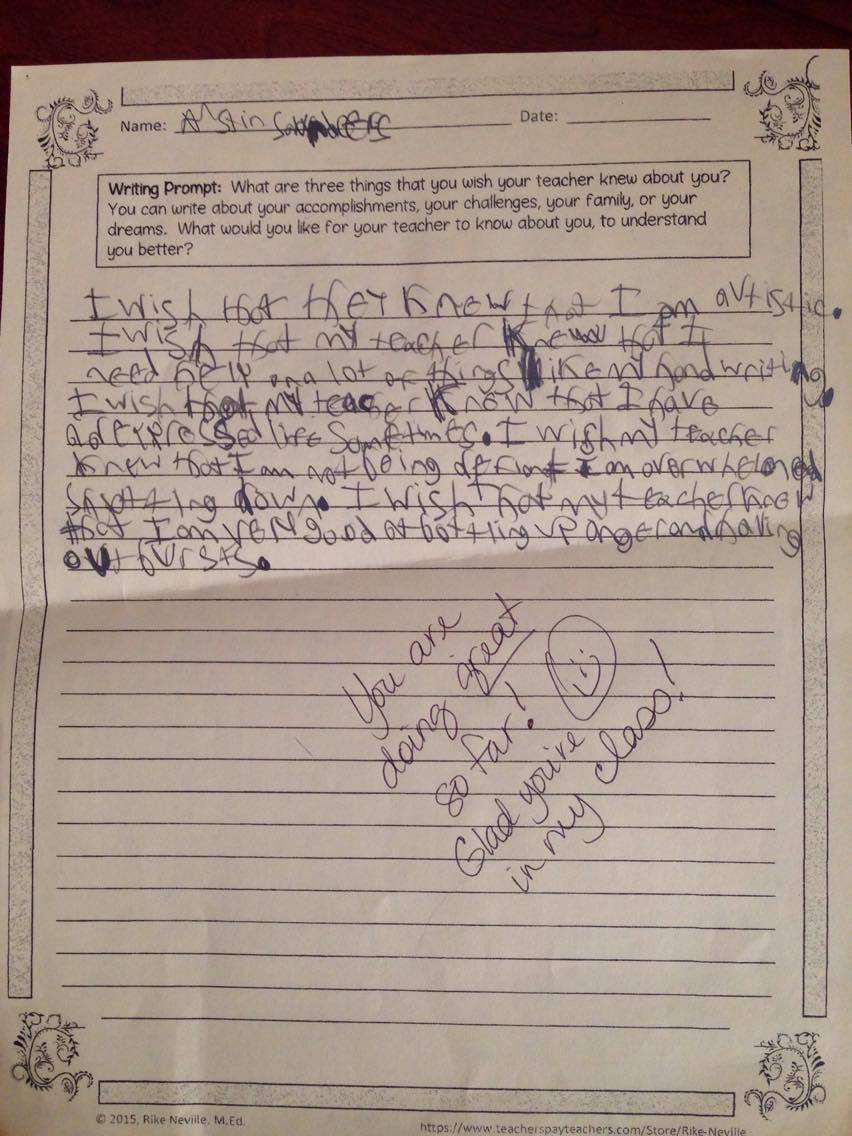 Name: A^stin
Date:
Writing Prompt: What are three things that you wish your teacher knew about you?
You can write about your accomplishments, your challenges, your family, or your
dreams. What would you like for your teacher to know about you, to understand
you better?
I wish that they knew that I am autistic.
I wish that my teacher knew that I
need help on a lot of things like my handwriting.
I wish that my teacher know that I have
a depressed life sometimes. I wish my teacher
knew that I am not being defiant I am overwhelmed
shutting down. I wish that my teacher knew
that I am very good at bottling up anger and having
outbursts.
You are
doing great
so far!
Glad you're
in my class!
© 2015, Rike Neville, M.Ed.
https://www.teacherspayteachers.com/Store/Rike-Neville